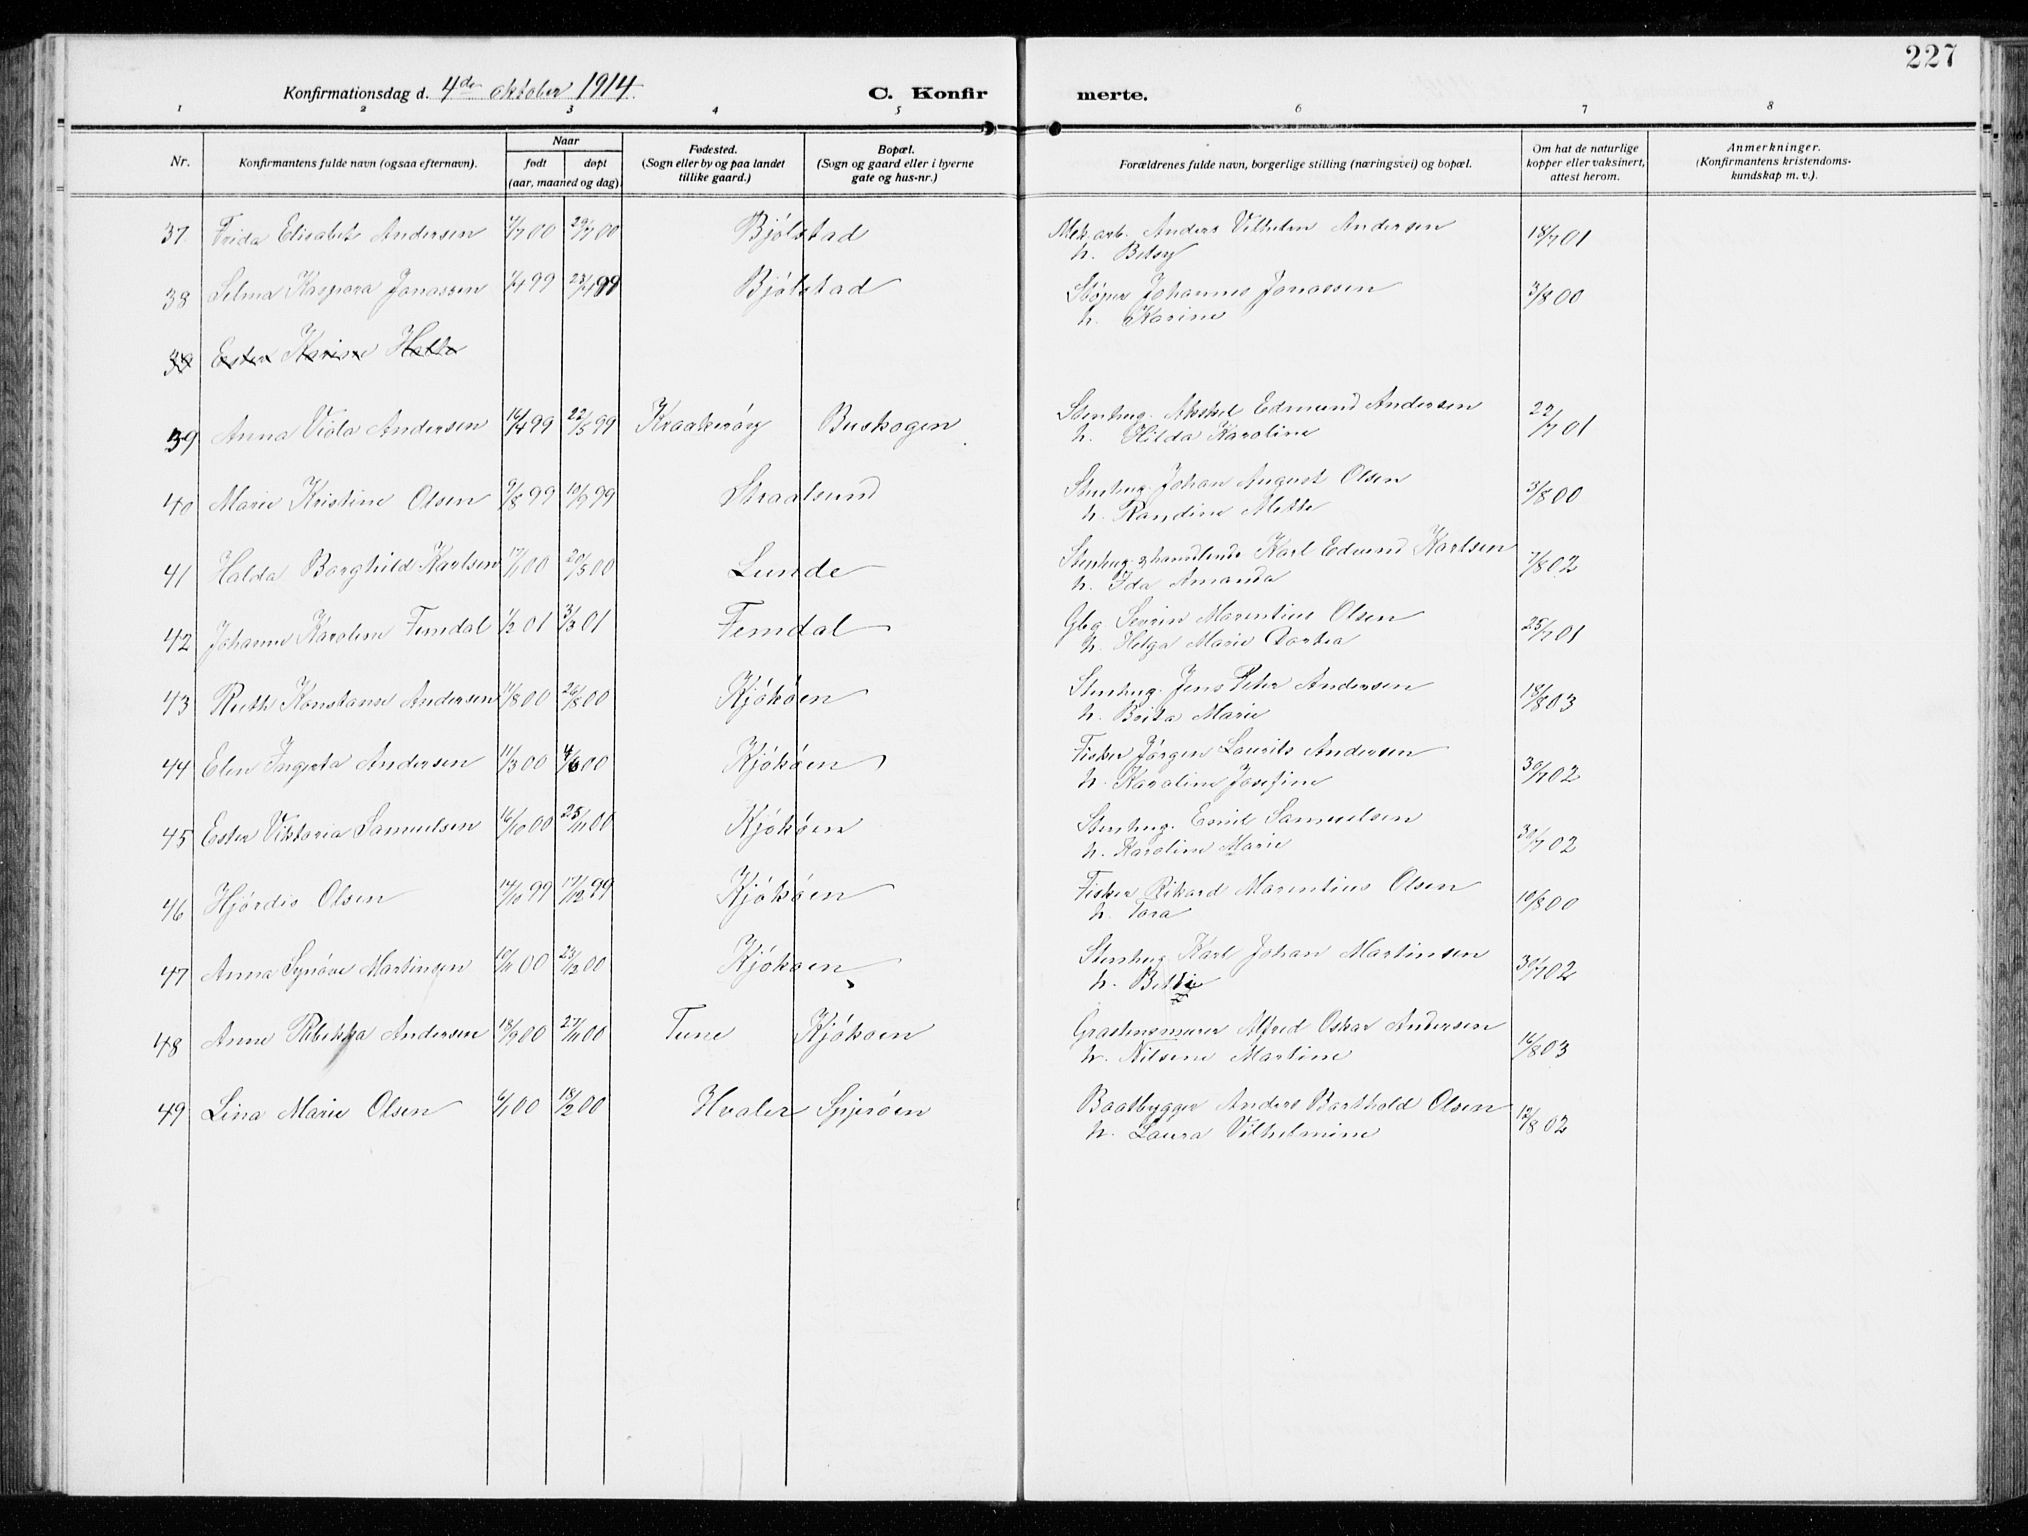 227
Konfirmationsdag d. 4de oktober 1914. C. Konfirmerte.
1 2 3 4 5 6 7 8
Nr. Konfirmantens fulde navn (ogsaa efternavn). Naar født døpt (aar, maaned og dag) Fødested. (Sogn eller by og paa landet tillike gaard.) Bopæl. (Sogn og gaard eller i byerne gate og hus-nr.) Forældrenes fulde navn, borgerlige stilling (næringsvei) og bopæl. Om hat de naturlige kopper eller vaksinert, attest herom. Anmerkninger. (Konfirmantens kristendomskundskap m. v.).
37 Frida Elisabet Andersen 7/7 00 29/7 00 Bjølstad Mek. arb. Anders Vilhelm Andersen 18/7 01
h. Betsy
38 Selma Kaspara Jonassen 1/4 99 23/4 99 Bjølstad Johannes Jonassen 3/8 00
h. Karine
39 Ester Karine Hatte
39 Anna Viola Andersen 16/4 99 22/5 99 Kraakerøy Buskogen Stenhug. Akshel Edmund Andersen 22/7 01
h. Hilda Karoline
40 Marie Kristine Olsen 9/8 99 10/9 99 Straalsund Stenhug. Johan August Olsen 3/8 00
h. Randine Mette
41 Halda Borghild Karlsen 17/1 00 20/5 00 Lunde Stenhug. & handlende Karl Edvard Karlsen 7/8 02
h. Ida Amanda
42 Johanne Karoline Femdal 1/2 01 31/3 01 Femdal Gbg. Sevrin Marentius Olsen 25/7 01
h. Helga Marie Dortea
43 Ruth Konstanse Andersen 11/8 00 26/8 00 Kjøkøen Stenhug. Jens Peter Andersen 18/8 03
h. Brita Marie
44 Elen Ingerta Andersen 11/3 00 4/6 00 Kjøkøen Fisker Jørgen Laurits Andersen 30/7 02
h. Karoline Josefine
45 Ester Viktoria Samuelsen 16/10 00 25/11 00 Kjøkøen Stenhug. Emil Samuelsen 30/7 02
h. Karoline Marie
46 Hjørdis Olsen 14/10 99 17/12 99 Kjøkøen Fisker Rikard Marentius Olsen 10/8 00
h. Tora
47 Anna Synøve Martinsen 10/11 00 23/12 00 Kjøkøen Stenhug. Karl Johan Martinsen 30/7 02
h. Betti
48 Anne Rebekka Andersen 18/9 00 27/11 00 Tune Kjøkøen Graastensmurer Alfred Oskar Andersen 16/8 03
h. Nilsine Martine
49 Lina Marie Olsen 6/1 00 18/2 00 Hvaler Spjerøen Baatbygger Anders Barthold Olsen 12/8 02
h. Laura Vilhelmine